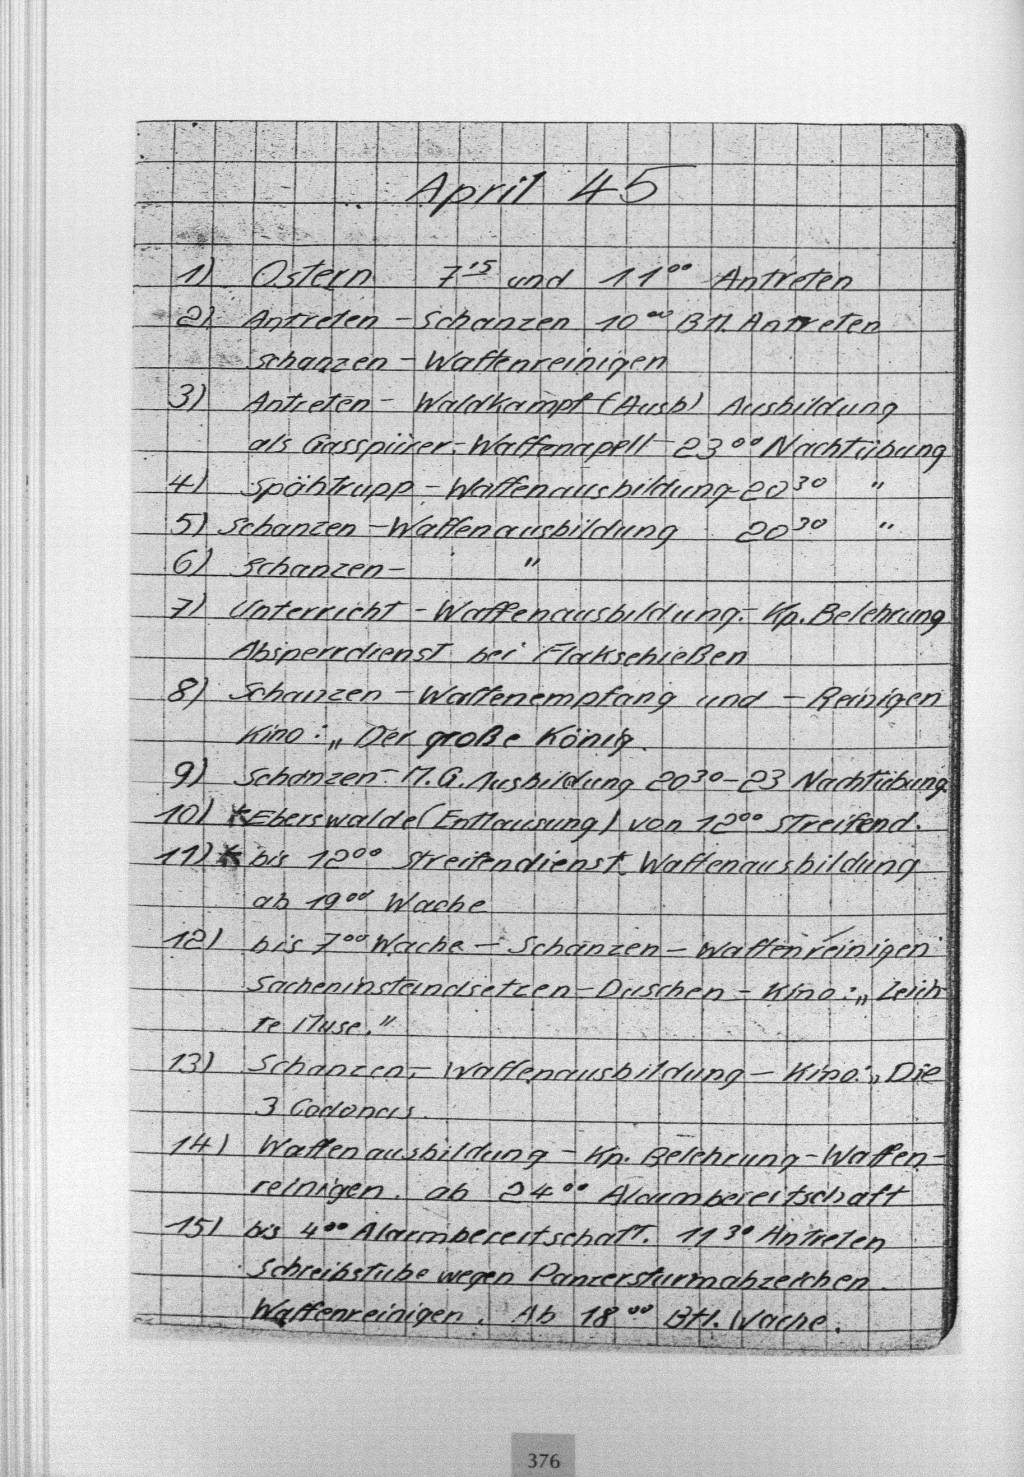 April 45
1) Ostern 7¹⁵ und 11⁰⁰ Antreten
2) Antreten – Schanzen 10⁰⁰ Btl. Antreten
schanzen – Waffenreinigen
3) Antreten – Waldkampf (Ausb) Ausbildung
als Gasspürer. Waffenapell – 23⁰⁰ Nachtübung
4) Spähtrupp – Waffenausbildung – 20³⁰ "
5) Schanzen – Waffenausbildung 20³⁰ "
6) Schanzen – "
7) Unterricht – Waffenausbildung. – Kp. Belehrung
Absperrdienst bei Flakschießen
8) Schanzen – Waffenempfang und – Reinigen
Kino: „Der große König.
9) Schanzen – M.G. Ausbildung 20³⁰ – 23 Nachtübung
10) *Eberswalde (Entlausung) von 12⁰⁰ Streifend.
11) * bis 12⁰⁰ Streifendienst. Waffenausbildung
ab 19⁰⁰ Wache
12) bis 7⁰⁰ Wache – Schanzen – Waffenreinigen
Sacheninstandsetzen – Duschen – Kino: „Leich-
te Muse."
13) Schanzen, – Waffenausbildung – Kino: „Die
3 Codonas.
14) Waffenausbildung – Kp. Belehrung – Waffen-
reinigen. ab 24⁰⁰ Alarmbereitschaft
15) bis 4⁰⁰ Alarmbereitschaft. 11³⁰ Antreten
Schreibstube wegen Panzersturmabzeichen.
Waffenreinigen. Ab 18⁰⁰ Btl. Wache.
376